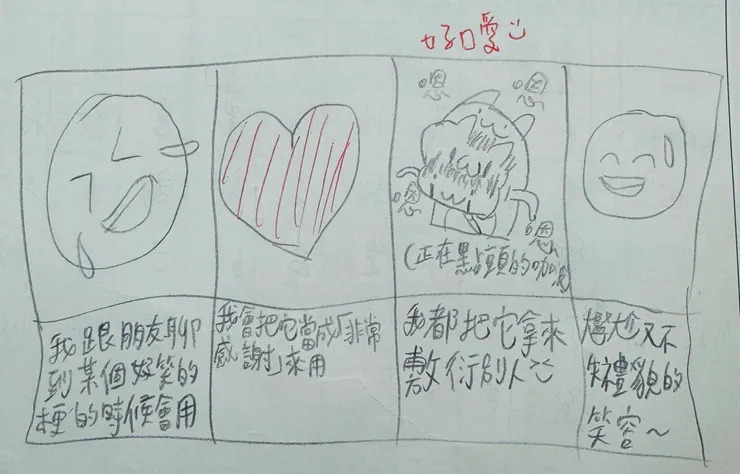 好口愛
嗯
嗯
嗯
嗯
(正在點頭的咖波
我跟朋友聊
到某個好笑的
梗的時候會用
我會把它當成「非常
感謝」來用
我都把它拿來
敷衍別人
尷尬又不
失禮貌的
笑容~